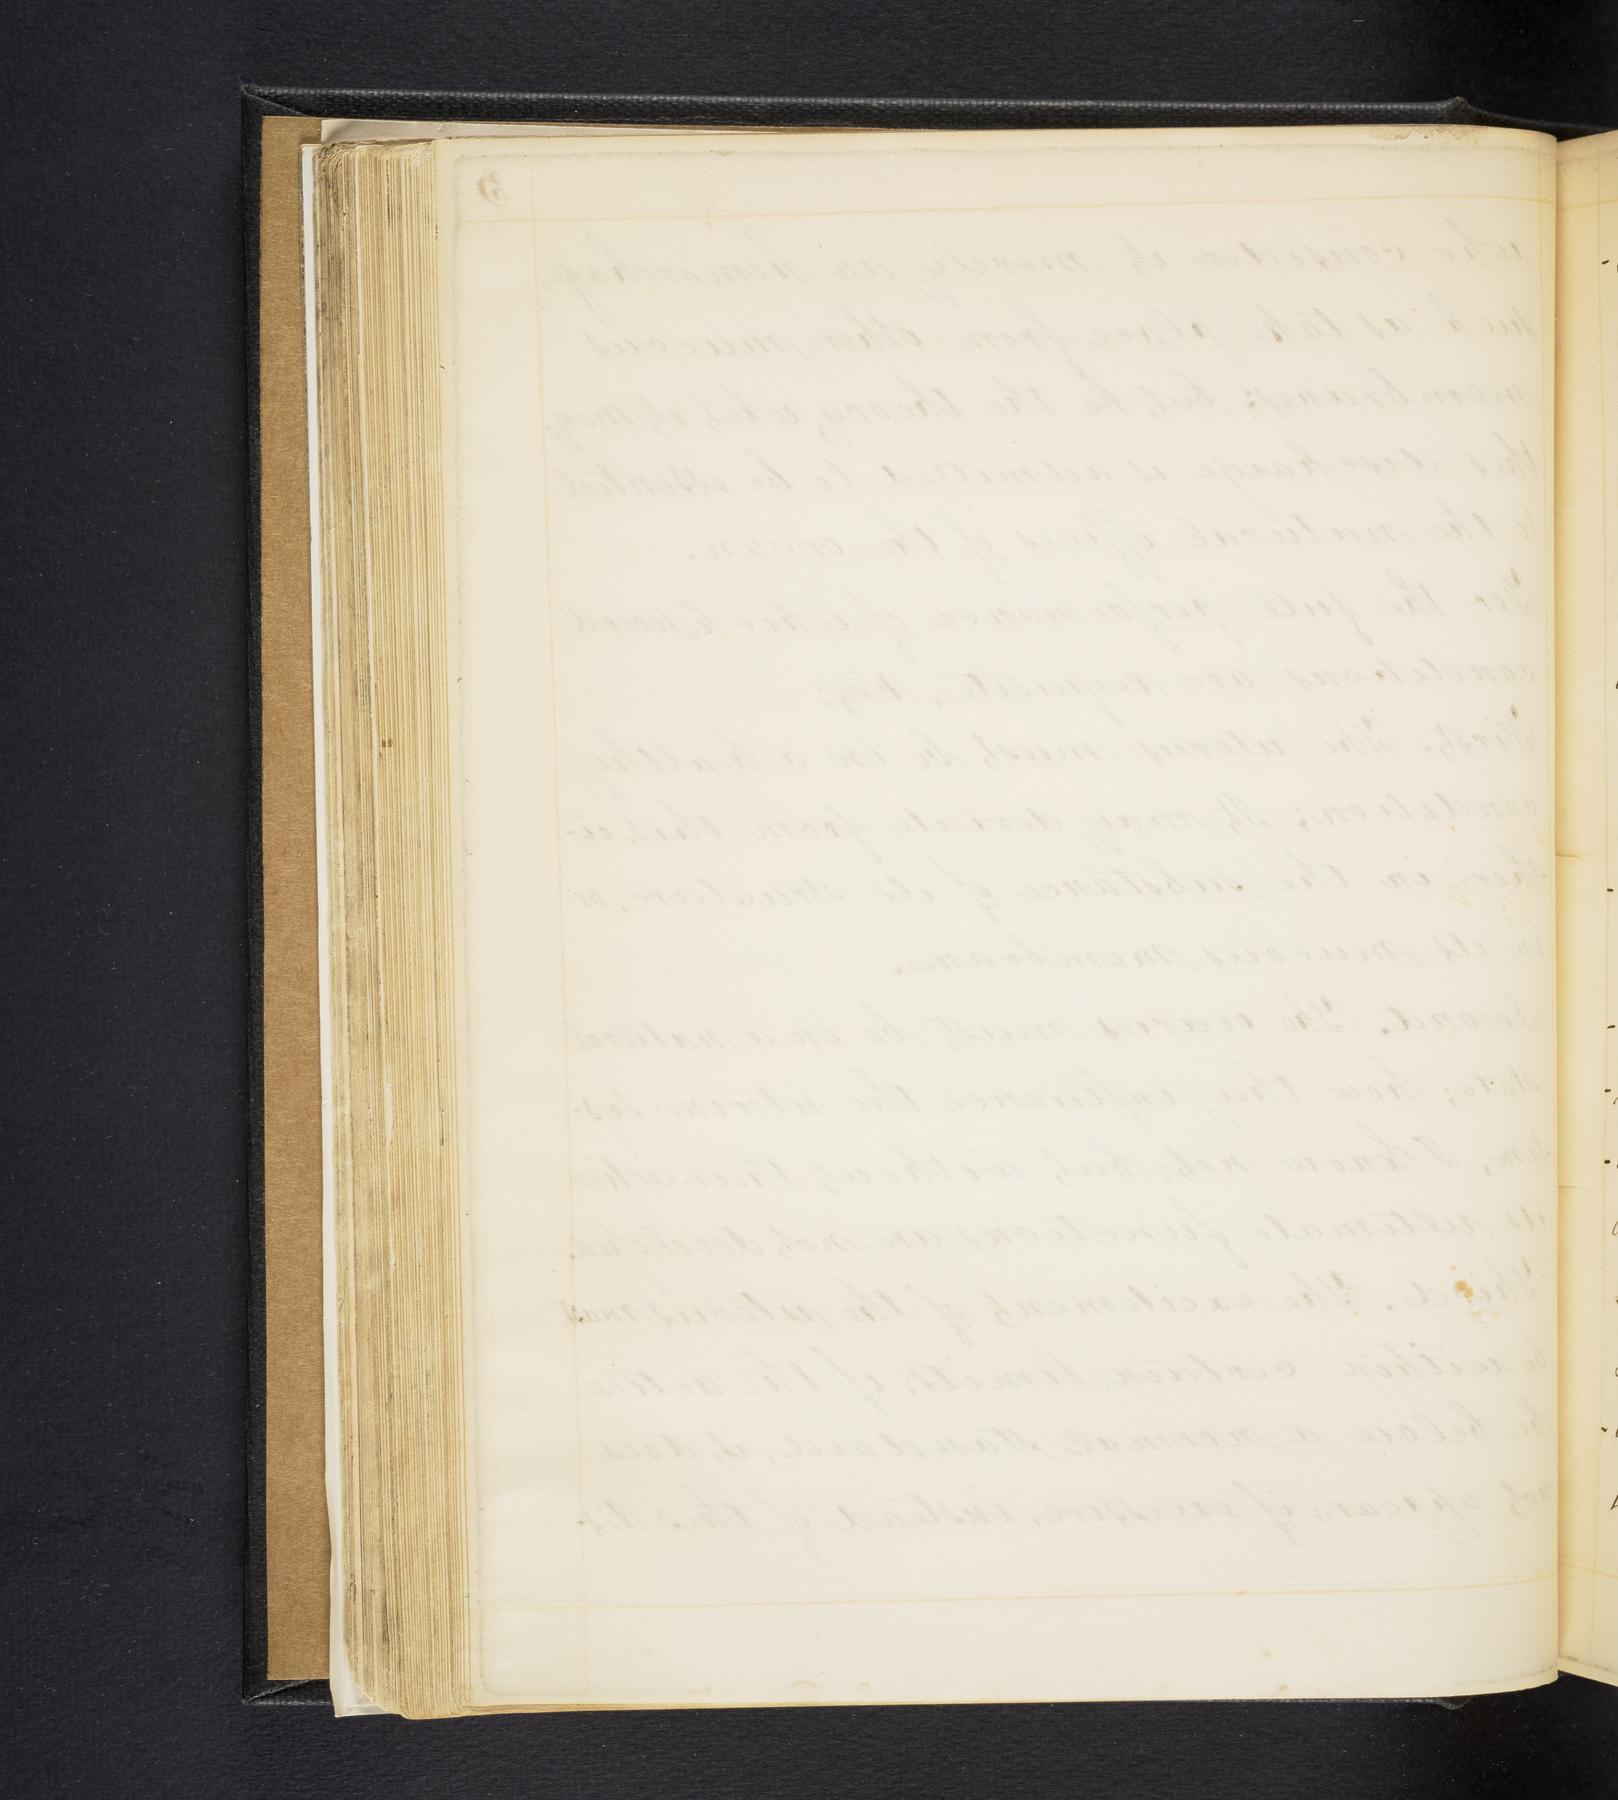 3
who considers it merely an hemorrhage,
such as take place from other mucous
membranes; but be the theory what it may,
this discharge is admitted to be essential
to the natural offices of the organ.
For the full performance of which several
conditions are requisite, viz.
First. The uterus must be in a healthy
condition; It may deviate from this, ei-
ther in the substance of its structure, or
in its mucous membrane.
Second. The ovaries must be in a natural
state; how they influence the uterine sys-
tem, I know not; but without their action
its ultimate functions are not developed.
Third. The excitement of the uterus must
be within certain limits; if the action
be below a normal standard, it does
not appear; if excessive, instead of this dis-